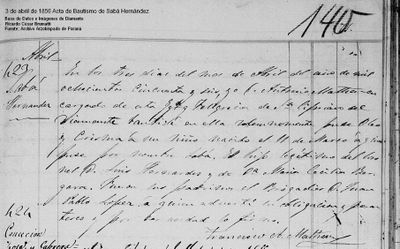 3 de abril de 1856 Acta de Bautismo de Sabá Hernández.
Base de Datos e Imágenes de Diamante
Ricardo César Brumatti
Fuente: Archivo Arzobispado de Paraná
140
Abril
423
Sabá
Hernandez
En los tres dias del mes de Abril del año de mil
ochocientos cincuenta y seis, yo C. Antonio
cargado de esta Yga Patronato de Sn Cipriano del
Diamante bautizé en ella solemnemente puse Oleo
y Crisma á un niño nacido el 11 de Marzo a quien
puse por nombre Saba. Es hijo legitimo del
nel D. Luis Hernandez y de Da Maria Cecilia
gara. Fueron sus padrinos el Brigadier D. Juan
Pablo Lopez, a quien advertí la obligacion y paren
tesco y por ser verdad lo firmo.
Francisco A.
424
Concecion
Cabrera